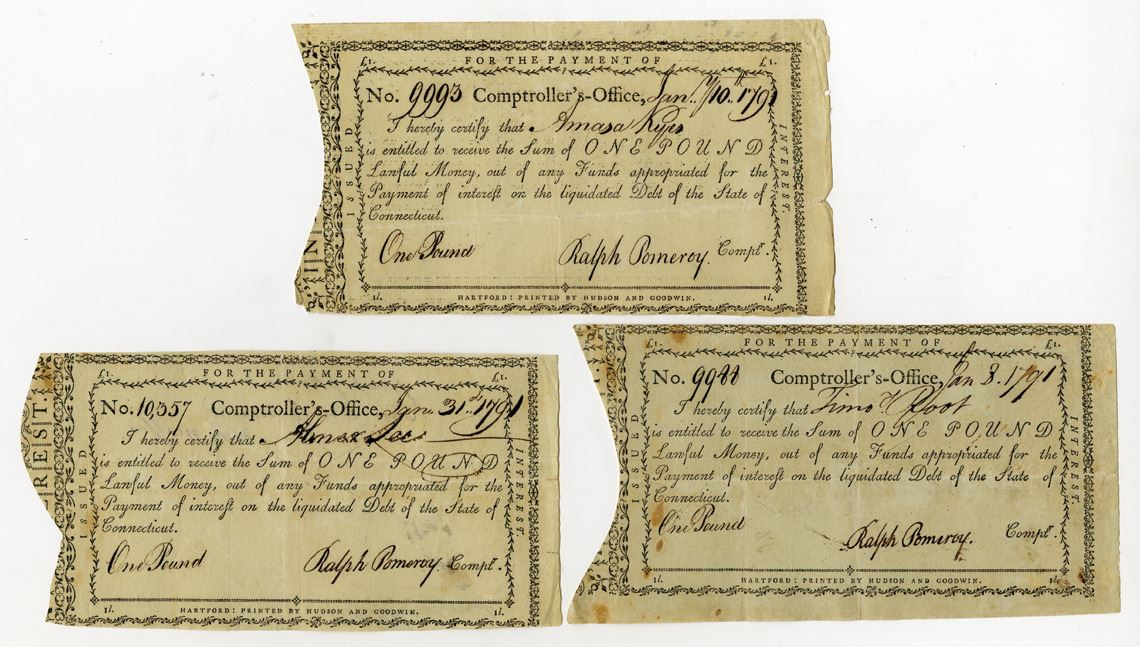 £1. FOR THE PAYMENT OF £1.
No. 9993 Comptroller's-Office, Jan.ʸ 10.ᵗʰ 1791
I hereby certify that Amasa Kyes
is entitled to receive the Sum of ONE POUND
Lawful Money, out of any Funds appropriated for the
Payment of interest on the liquidated Debt of the State of
Connecticut.
One Pound Ralph Pomeroy. Compʳ.
1l. HARTFORD: PRINTED BY HUDSON AND GOODWIN. 1l.
ISSUED
INTEREST.
£1. FOR THE PAYMENT OF £1.
No. 10,357 Comptroller's-Office, Jan. 31.ˢᵗ 1791
I hereby certify that
is entitled to receive the Sum of ONE POUND
Lawful Money, out of any Funds appropriated for the
Payment of interest on the liquidated Debt of the State of
Connecticut.
One Pound Ralph Pomeroy. Compʳ.
1l. HARTFORD: PRINTED BY HUDSON AND GOODWIN. 1l.
ISSUED
INTEREST.
REST.
£1. FOR THE PAYMENT OF £1.
No. 9988 Comptroller's-Office, Jan 8. 1791
I hereby certify that Timoʸ Root
is entitled to receive the Sum of ONE POUND
Lawful Money, out of any Funds appropriated for the
Payment of interest on the liquidated Debt of the State of
Connecticut.
One Pound Ralph Pomeroy. Compʳ.
1l. HARTFORD: PRINTED BY HUDSON AND GOODWIN.
ISSUED
INTEREST.